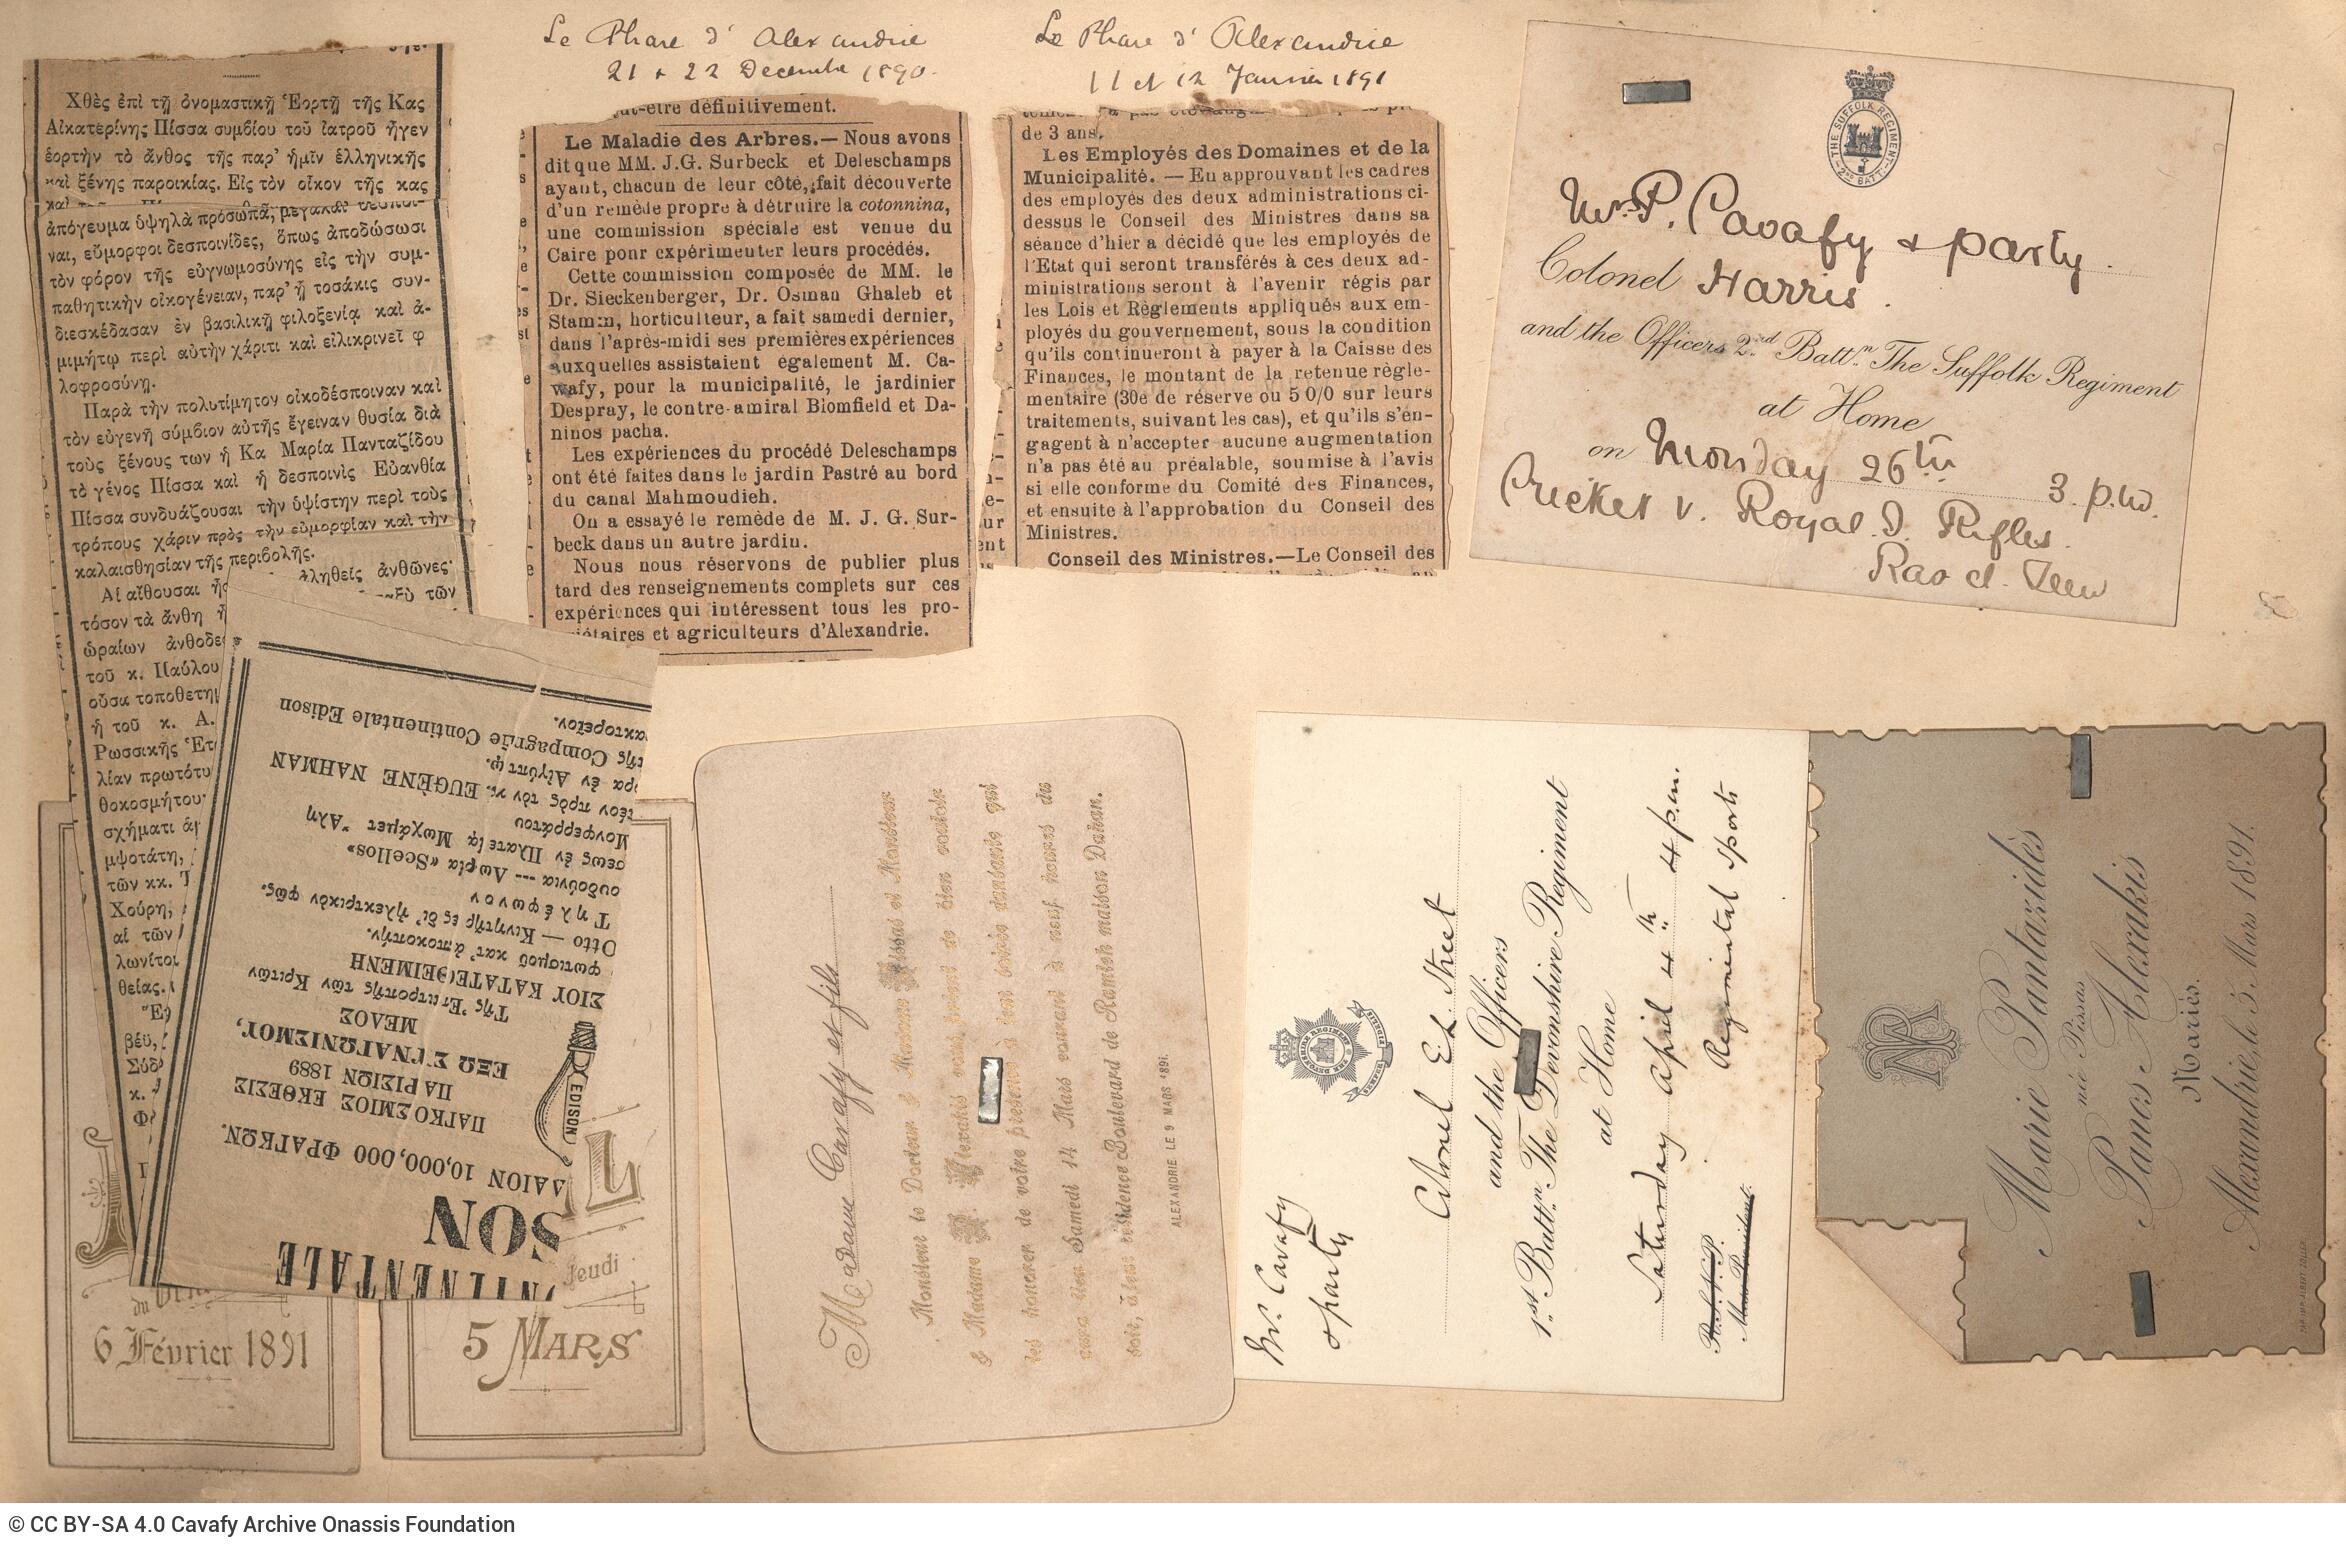 Χθὲς ἐπὶ τῇ ὀνομαστικῇ Ἑορτῇ τῆς Κας
Αἰκατερίνης Πίσσα συμβίου τοῦ ἰατροῦ ἦγεν
ἑορτὴν τὸ ἄνθος τῆς παρ' ἡμῖν ἑλληνικῆς
καὶ ξένης παροικίας. Εἰς τὸν οἶκον τῆς κας
ἀπόγευμα ὑψηλὰ πρόσωπα, μεγάλαι δέσποι-
ναι, εὔμορφοι δεσποινίδες, ὅπως ἀποδώσωσι
τὸν φόρον τῆς εὐγνωμοσύνης εἰς τὴν συμ-
παθητικὴν οἰκογένειαν, παρ' ᾗ τοσάκις συν-
διεσκέδασαν ἐν βασιλικῇ φιλοξενίᾳ καὶ ἀ-
μιμήτῳ περὶ αὐτὴν χάριτι καὶ εἰλικρινεῖ φ
λοφροσύνῃ.
Παρὰ τὴν πολυτίμητον οἰκοδέσποιναν καὶ
τὸν εὐγενῆ σύμβιον αὐτῆς ἔγειναν θυσία διὰ
τοὺς ξένους των ἡ Κα Μαρία Πανταζίδου
τὸ γένος Πίσσα καὶ ἡ δεσποινὶς Εὐανθία
Πίσσα συνδυάζουσαι τὴν ὑψίστην περὶ τοὺς
τρόπους χάριν πρὸς τὴν εὐμορφίαν καὶ τὴν
καλαισθησίαν τῆς περιβολῆς.
Αἱ αἴθουσαι
πληθεῖς ἀνθῶνες·
τόσον τὰ ἄνθη
τῶν
ὡραίων ἀνθοδε
τοῦ κ. Παύλου
οὖσα τοποθετη
ἡ τοῦ κ. Α.
Ρωσσικῆς Ἑτ
λίαν πρωτότυ
θοκοσμήτου·
σχήματι
μψοτάτη,
τῶν κκ.
Χούρη,
αἱ τῶν
λωνίτου
θείας.
βέϋ,
Σύδ
κ.
Le Phare d'Alexandrie
21 & 22 Decembre 1890.
ut-être définitivement.
Le Maladie des Arbres.— Nous avons
dit que MM. J.G. Surbeck et Deleschamps
ayant, chacun de leur côté, fait découverte
d'un remède propre à détruire la cotonnina,
une commission spéciale est venue du
Caire pour expérimenter leurs procédés.
Cette commission composée de MM. le
Dr. Sieckenberger, Dr. Osman Ghaleb et
Stamm, horticulteur, a fait samedi dernier,
dans l'après-midi ses premières expériences
auxquelles assistaient également M. Ca-
wafy, pour la municipalité, le jardinier
Despray, le contre-amiral Blomfield et Da-
ninos pacha.
Les expériences du procédé Deleschamps
ont été faites dans le jardin Pastré au bord
du canal Mahmoudieh.
On a essayé le remède de M. J. G. Sur-
beck dans un autre jardin.
Nous nous réservons de publier plus
tard des renseignements complets sur ces
expériences qui intéressent tous les pro-
priétaires et agriculteurs d'Alexandrie.
Le Phare d'Alexandrie
11 et 12 Janvier 1891
de 3 ans.
Les Employés des Domaines et de la
Municipalité. — En approuvant les cadres
des employés des deux administrations ci-
dessus le Conseil des Ministres dans sa
séance d'hier a décidé que les employés de
l'Etat qui seront transférés à ces deux ad-
ministrations seront à l'avenir régis par
les Lois et Règlements appliqués aux em-
ployés du gouvernement, sous la condition
qu'ils continueront à payer à la Caisse des
Finances, le montant de la retenue règle-
mentaire (30e de réserve ou 5 0/0 sur leurs
traitements, suivant les cas), et qu'ils s'en-
gagent à n'accepter aucune augmentation
n'a pas été au préalable, soumise à l'avis
si elle conforme du Comité des Finances,
et ensuite à l'approbation du Conseil des
Ministres.
Conseil des Ministres.—Le Conseil des
THE SUFFOLK REGIMENT
2ND BATT.
Mr. P. Cavafy & party.
Colonel Harris.
and the Officers 2nd Battn. The Suffolk Regiment
at Home
on Monday 26th 3 p.m.
Cricket v. Royal I. Rifles.
Ras el-Teen
NTINENTALE
SON
ΛΑΙΟΝ 10,000,000 ΦΡΑΓΚΩΝ.
ΠΑΓΚΟΣΜΙΟΣ ΕΚΘΕΣΙΣ
ΠΑΡΙΣΙΩΝ 1889
ΕΞΩ ΣΥΝΑΓΩΝΙΣΜΟΥ,
ΜΕΛΟΣ
Τῆς Ἐπιτροπῆς τῶν Κριτῶν
ΣΙΟΥ ΚΑΤΑΤΕΘΕΙΜΕΝΗ
φωτισμοῦ κατ' ἀποκοπήν.
Otto — Κινητῆρες δι' ἠλεκτρικὸν φῶς.
Τηλέφωνον
ουδούνια --- Λωρία «Scellos»
σεως ἐν Πλατείᾳ Μωχάμετ Ἄλη
Μονφερράτου
τέον πρὸς τὸν κ. EUGÈNE NAHMAN
ρα ἐν Αἰγύπτῳ.
τῆς Compagnie Continentale Edison
ακτορεῖον.
EDISON
du
6 Février 1891
Jeudi
5 MARS
Madame Cavafy et fils
Monsieur le Docteur & Madame Pissas et Monsieur
& Madame P. Alexakis vous prient de bien vouloir
les honorer de votre présence à leur soirée dansante qui
aura lieu Samedi 14 Mars courant à neuf heures du
soir, à leur résidence Boulevard de Ramleh maison Dahan.
ALEXANDRIE LE 9 MARS 1891.
Mr. Cavafy
& party
THE DEVONSHIRE REGIMENT
SEMPER FIDELIS
Colonel E.H. Street
and the Officers
1st Battn The Devonshire Regiment
at Home
Saturday April 4th 4 p.m.
Regimental Sports
R.S.V.P.
Mess President.
Marie Pantazidès
née Pissas
Panos Alexakis
Mariés.
Alexandrie, le 5 Mars 1891.
© CC BY-SA 4.0 Cavafy Archive Onassis Foundation